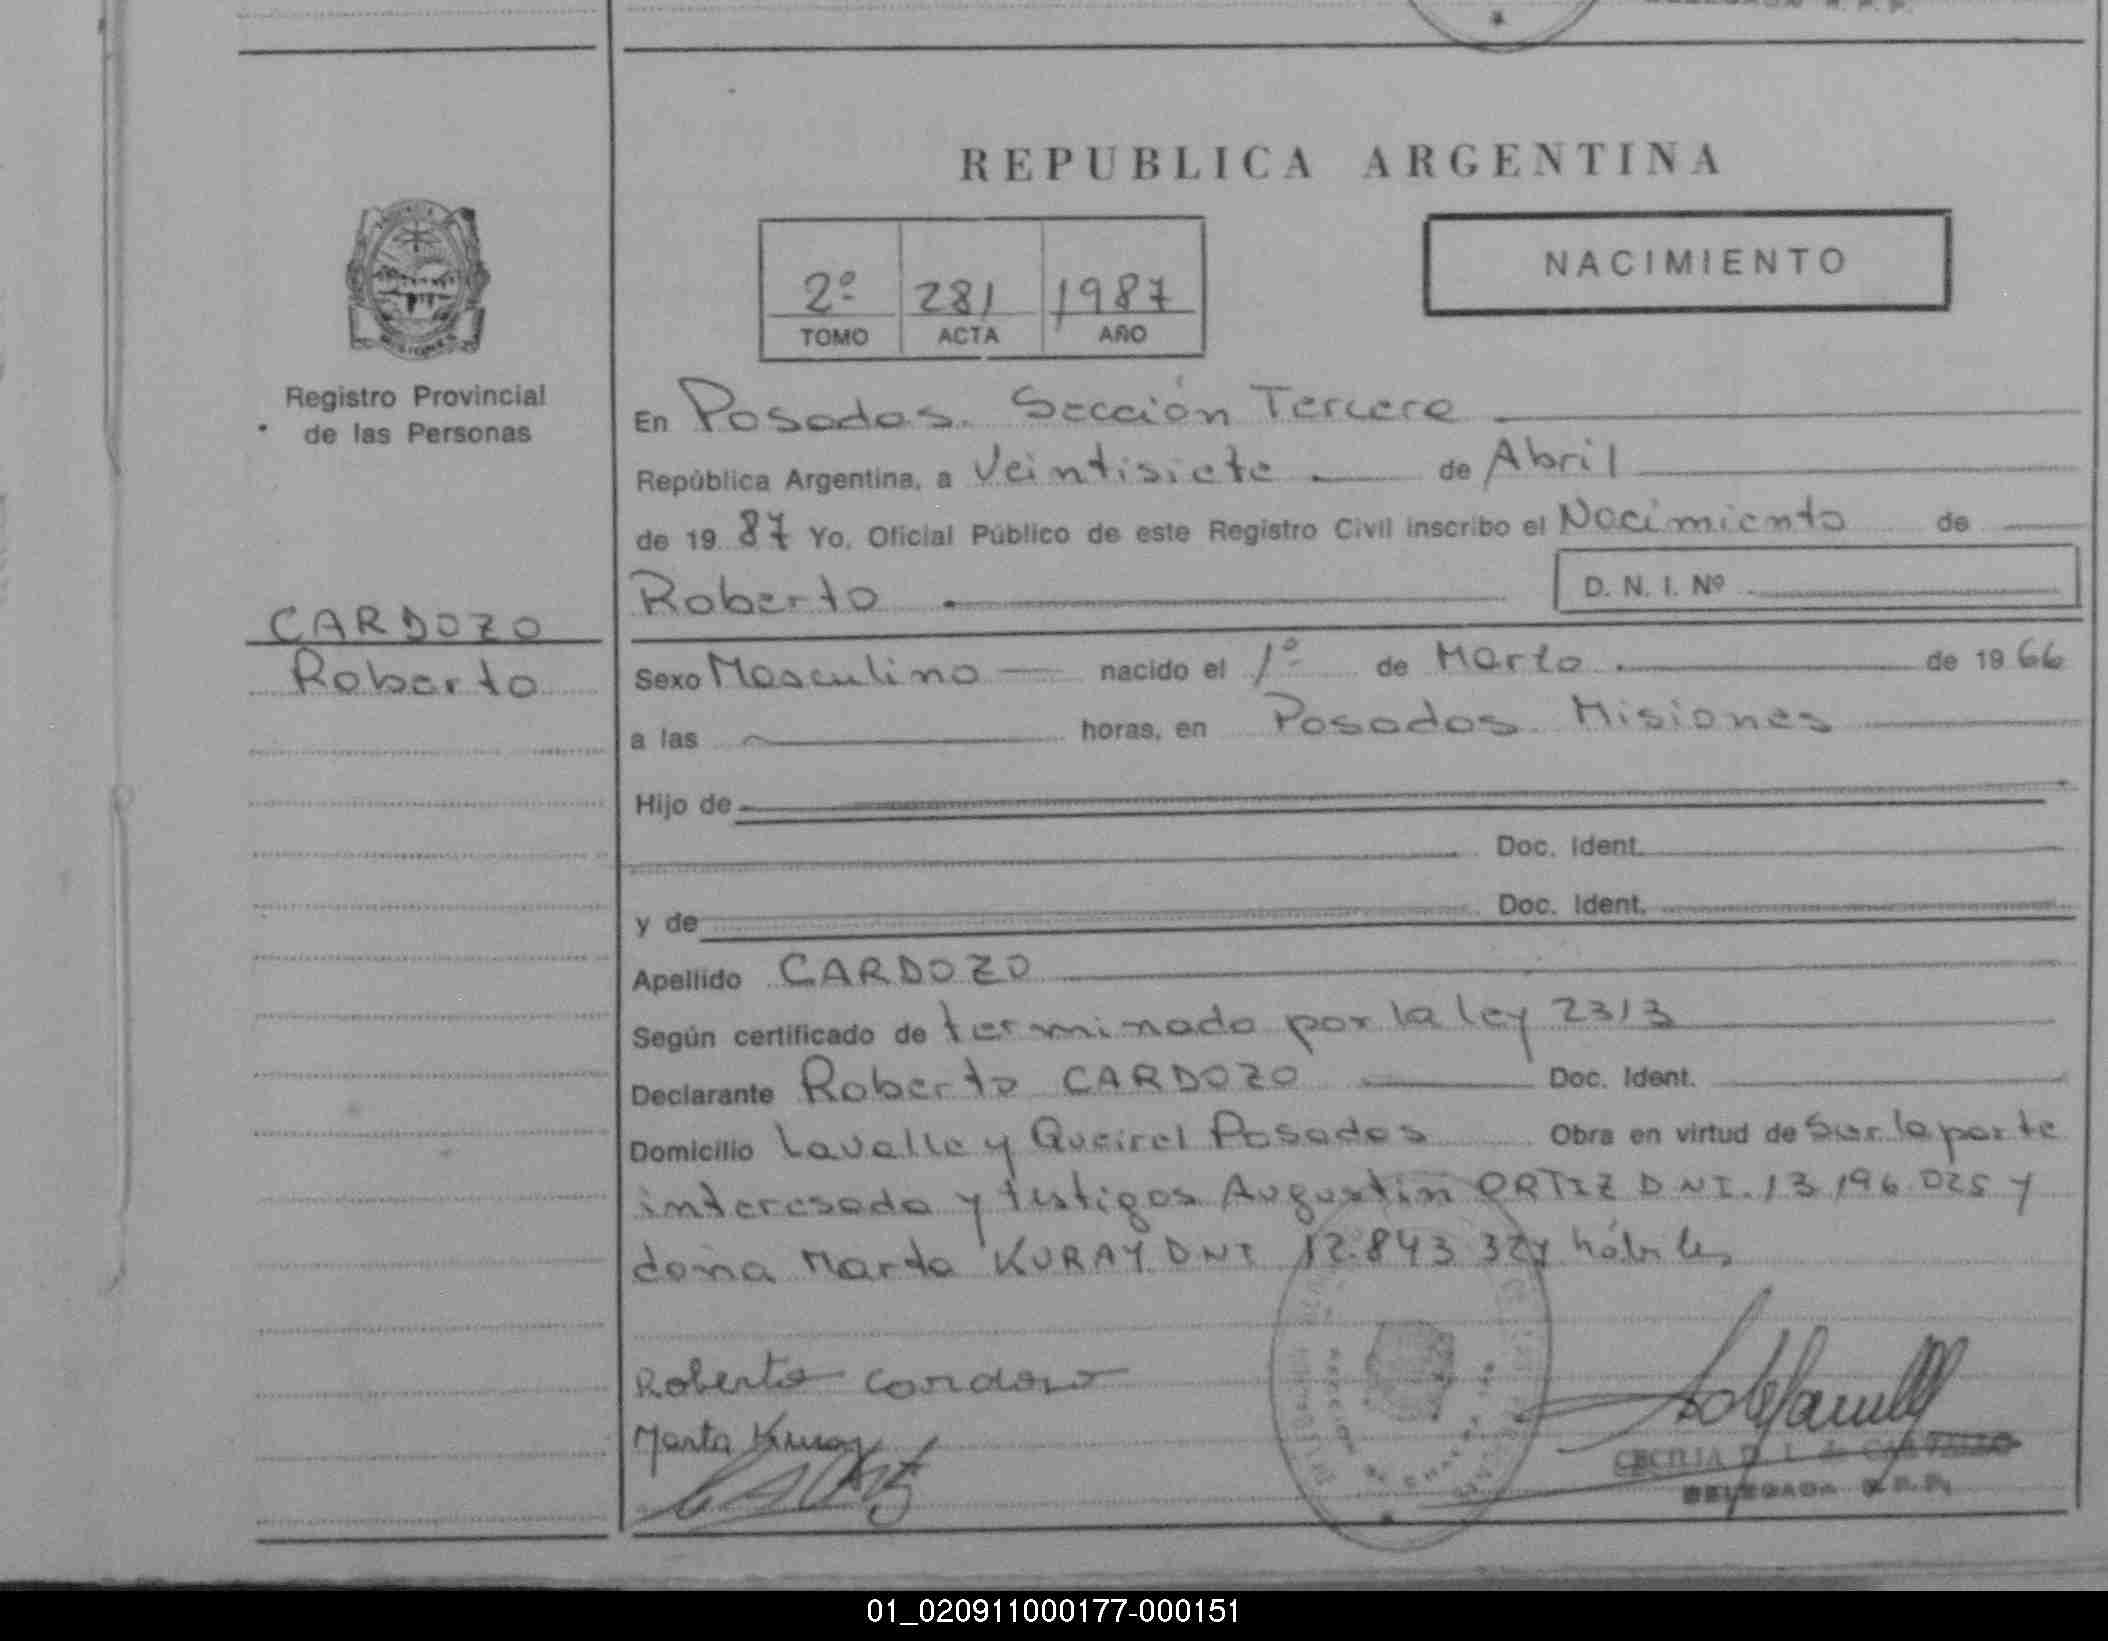 REPUBLICA ARGENTINA
NACIMIENTO
2º 281 1987
TOMO ACTA AÑO
Registro Provincial
de las Personas
En Posadas. Sección Tercera
República Argentina, a Veintisiete de Abril
de 19 87 Yo, Oficial Público de este Registro Civil inscribo el Nacimiento de
Roberto D. N. I. Nº
CARDOZO
Roberto
Sexo Masculino nacido el 1º de Marzo de 19 66
a las horas, en Posadas Misiones
Hijo de
Doc. Ident.
y de Doc. Ident.
Apellido CARDOZO
Según certificado de terminado por la ley 2313
Declarante Roberto CARDOZO Doc. Ident.
Domicilio Lavalle y Queirel Posadas Obra en virtud de Ser la parte
interesada y testigos Augustin ORTIZ DNI. 13 196 025 y
doña Marta KURAY DNI 12.843 327 hábiles
Roberto Cardozo
Marta Kuray
CECILIA
DELEGADA R.P.P.
01_020911000177-000151